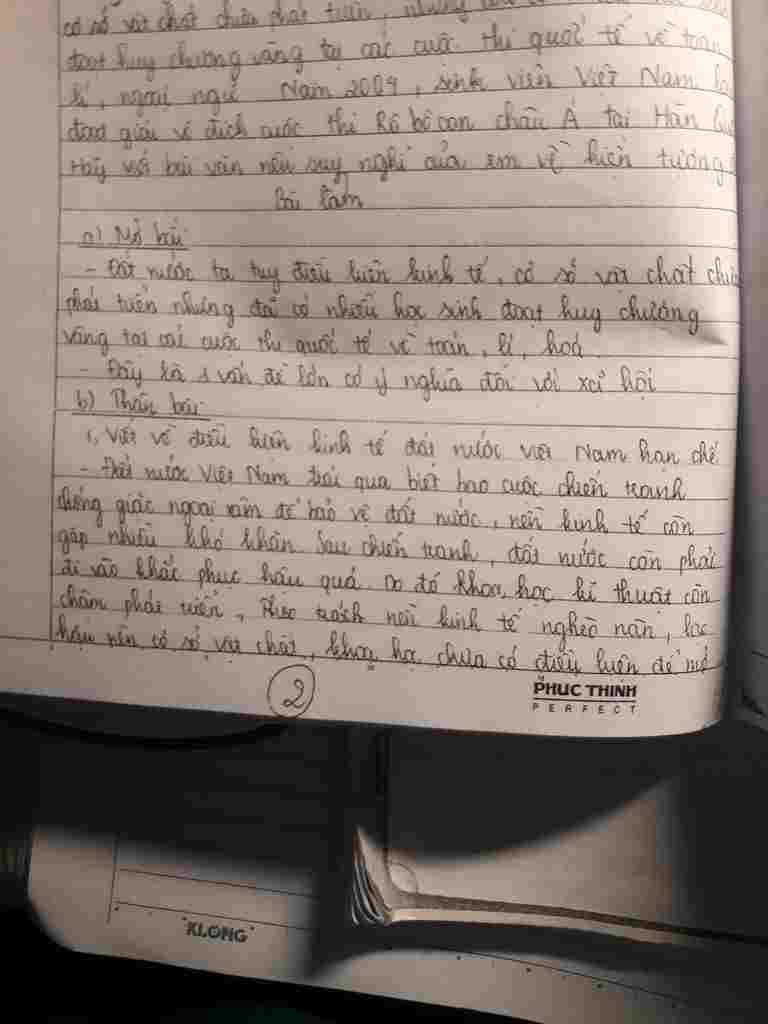 cơ sở vật chất chưa phát triển, nhưng
đoạt huy chương vàng tại các cuộc thi quốc tế về toán
lí, ngoại ngữ Năm 2004, sinh viên Việt Nam lại
đoạt giải vô địch cuộc thi Rô bô con châu Á tại Hàn
Hãy viết bài văn nêu suy nghĩ của em về hiện tượng
Bài làm
a) Mở bài
- Đất nước ta tuy điều kiện kinh tế, cơ sở vật chất chưa
phát triển nhưng đã có nhiều học sinh đoạt huy chương
vàng tại các cuộc thi quốc tế về toán, lí, hoá
- Đây là 1 vấn đề lớn có ý nghĩa đối với xã hội
b) Thân bài
1, Viết về điều kiện kinh tế đất nước Việt Nam hạn chế
- Đất nước Việt Nam trải qua biết bao cuộc chiến tranh
chống giặc ngoại xâm để bảo vệ đất nước, nền kinh tế còn
gặp nhiều khó khăn. Sau chiến tranh, đất nước còn phải
đi vào khắc phục hậu quả. Do đó khoa học kĩ thuật còn
chậm phát triển, nền kinh tế nghèo nàn, lạc
hậu nên cơ sở vật chất, khoa học chưa có điều kiện để mở
2
PHUC THINH
PERFECT
"KLONG"